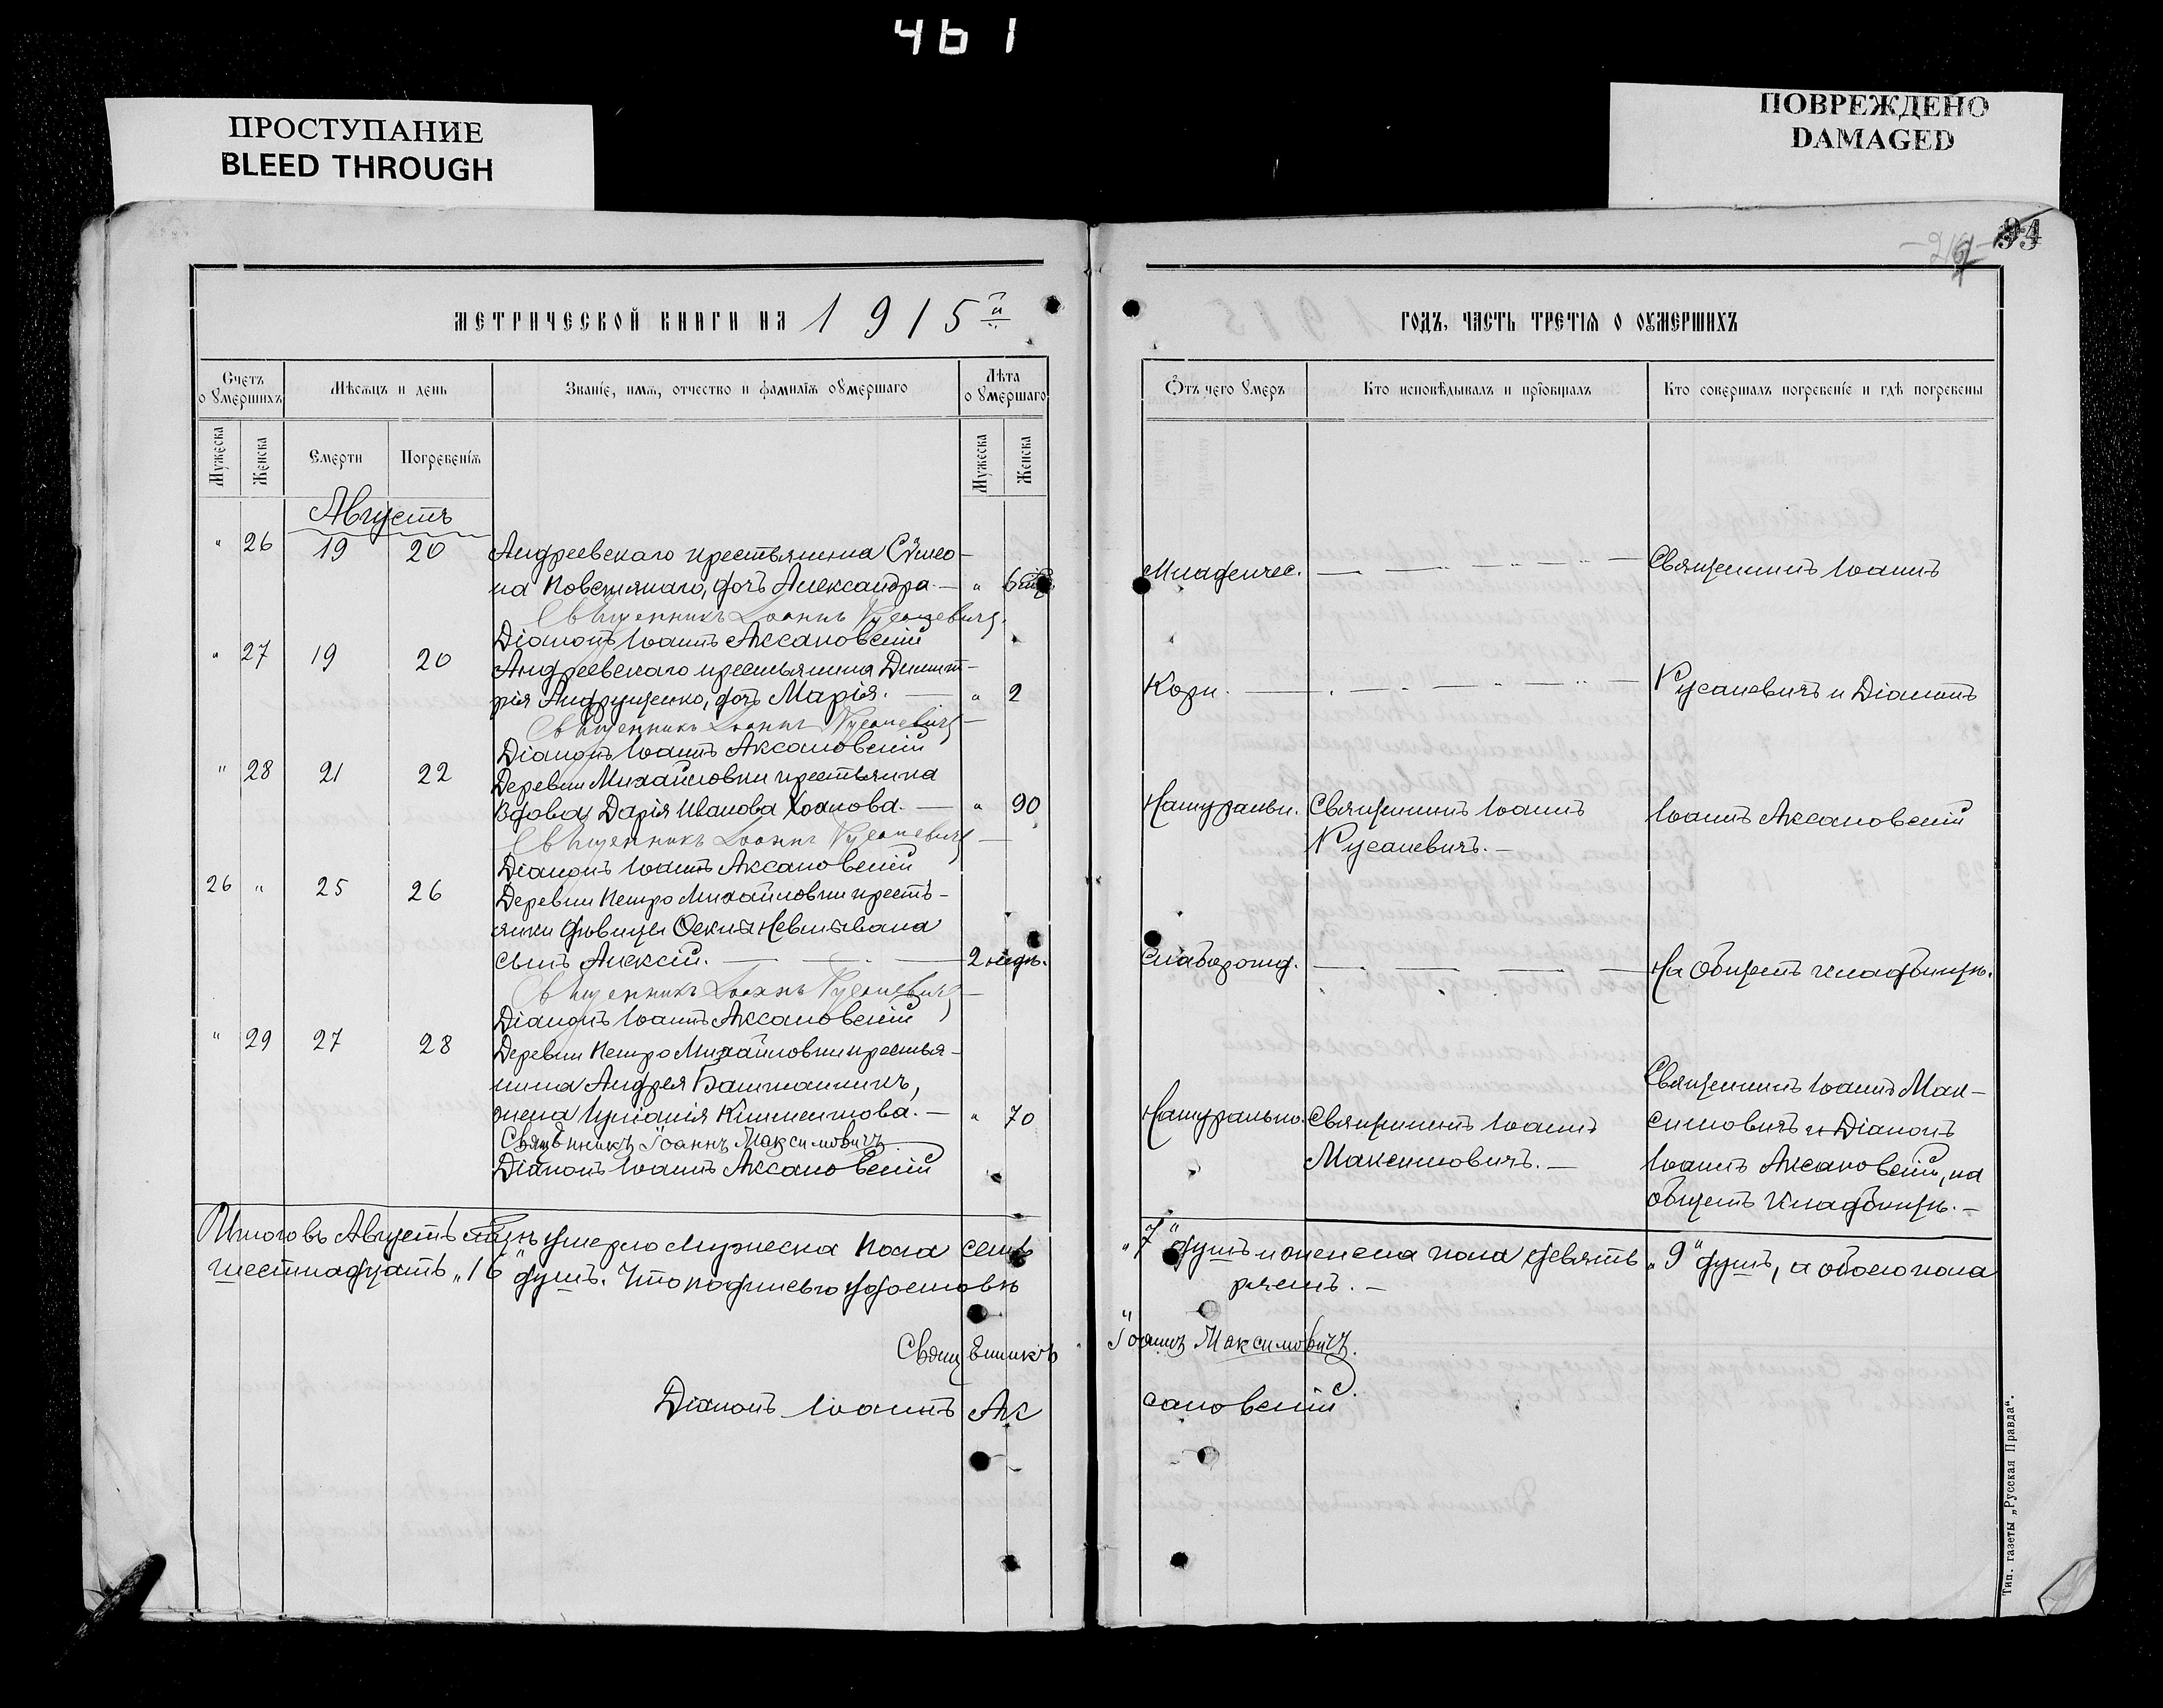 461
ПРОСТУПАНИЕ
BLEED THROUGH
ПОВРЕЖДЕНО
DAMAGED
94
МЕТРИЧЕСКОЙ КНИГИ НА 1915й
Счетъ о умершихъ
Мѣсяцъ и день
Званіе, имя, отчество и фамилія умершаго
Лѣта умершаго
Мужеска
Женска
Смерти
Погребенія
Мужеска
Женска
Августъ
" 26 19 20 Андреевскаго крестьянина Сѵмео-
на Повстянаго, дочь Александра. — "
Священникъ Іоаннъ Русаневичъ.
Діаконъ Іоаннъ Аксановскій
" 27 19 20 Андреевскаго крестьянина Димит-
рія Андрущенко, дочь Марія. — " 2
Священникъ Іоаннъ Русаневичъ —
Діаконъ Іоаннъ Аксановскій
" 28 21 22 Деревни Михайловки крестьянка
вдова Дарія Иванова — " 90
Священникъ Іоаннъ Русаневичъ —
Діаконъ Іоаннъ Аксановскій
26 " 25 26 Деревни Петро Михайловки кресть-
янки дѣвицы
сынъ Алексій. — 2 нед.
Священникъ Іоаннъ Русаневичъ —
Діаконъ Іоаннъ Аксановскій
" 29 27 28 Деревни Петро Михайловки крестья-
нина Андрея Башмашникъ,
жена Іуліанія Климентова. — " 70
Священникъ Іоаннъ Максимовичъ
Діаконъ Іоаннъ Аксановскій
Итого въ Августѣ мцѣ умерло мужеска пола семь
шестнадцать „16" душъ. Что подписью удостовѣ
Священникъ
Діаконъ Іоаннъ Ак
ГОДЪ, ЧАСТЬ ТРЕТІЯ О УМЕРШИХЪ
Отъ чего умеръ
Кто исповѣдывалъ и пріобщалъ
Кто совершалъ погребеніе и гдѣ погребены
Младенчес. — Священникъ Іоаннъ
Кори. — Русаневичъ и Діаконъ
Натуральн. Священникъ Іоаннъ Іоаннъ Аксановскій
Русаневичъ. —
Слаборожд. — На общемъ кладбищѣ.
Священникъ Іоаннъ Мак-
Натурально. Священникъ Іоаннъ симовичъ и Діаконъ
Максимовичъ. — Іоаннъ Аксановскій, на
общемъ кладбищѣ. —
„7" душъ и женска пола девять „9" душъ, а обоего пола
ряемъ. —
Іоаннъ Максимовичъ.
сановскій.
Тип. газеты „Русская Правда“.